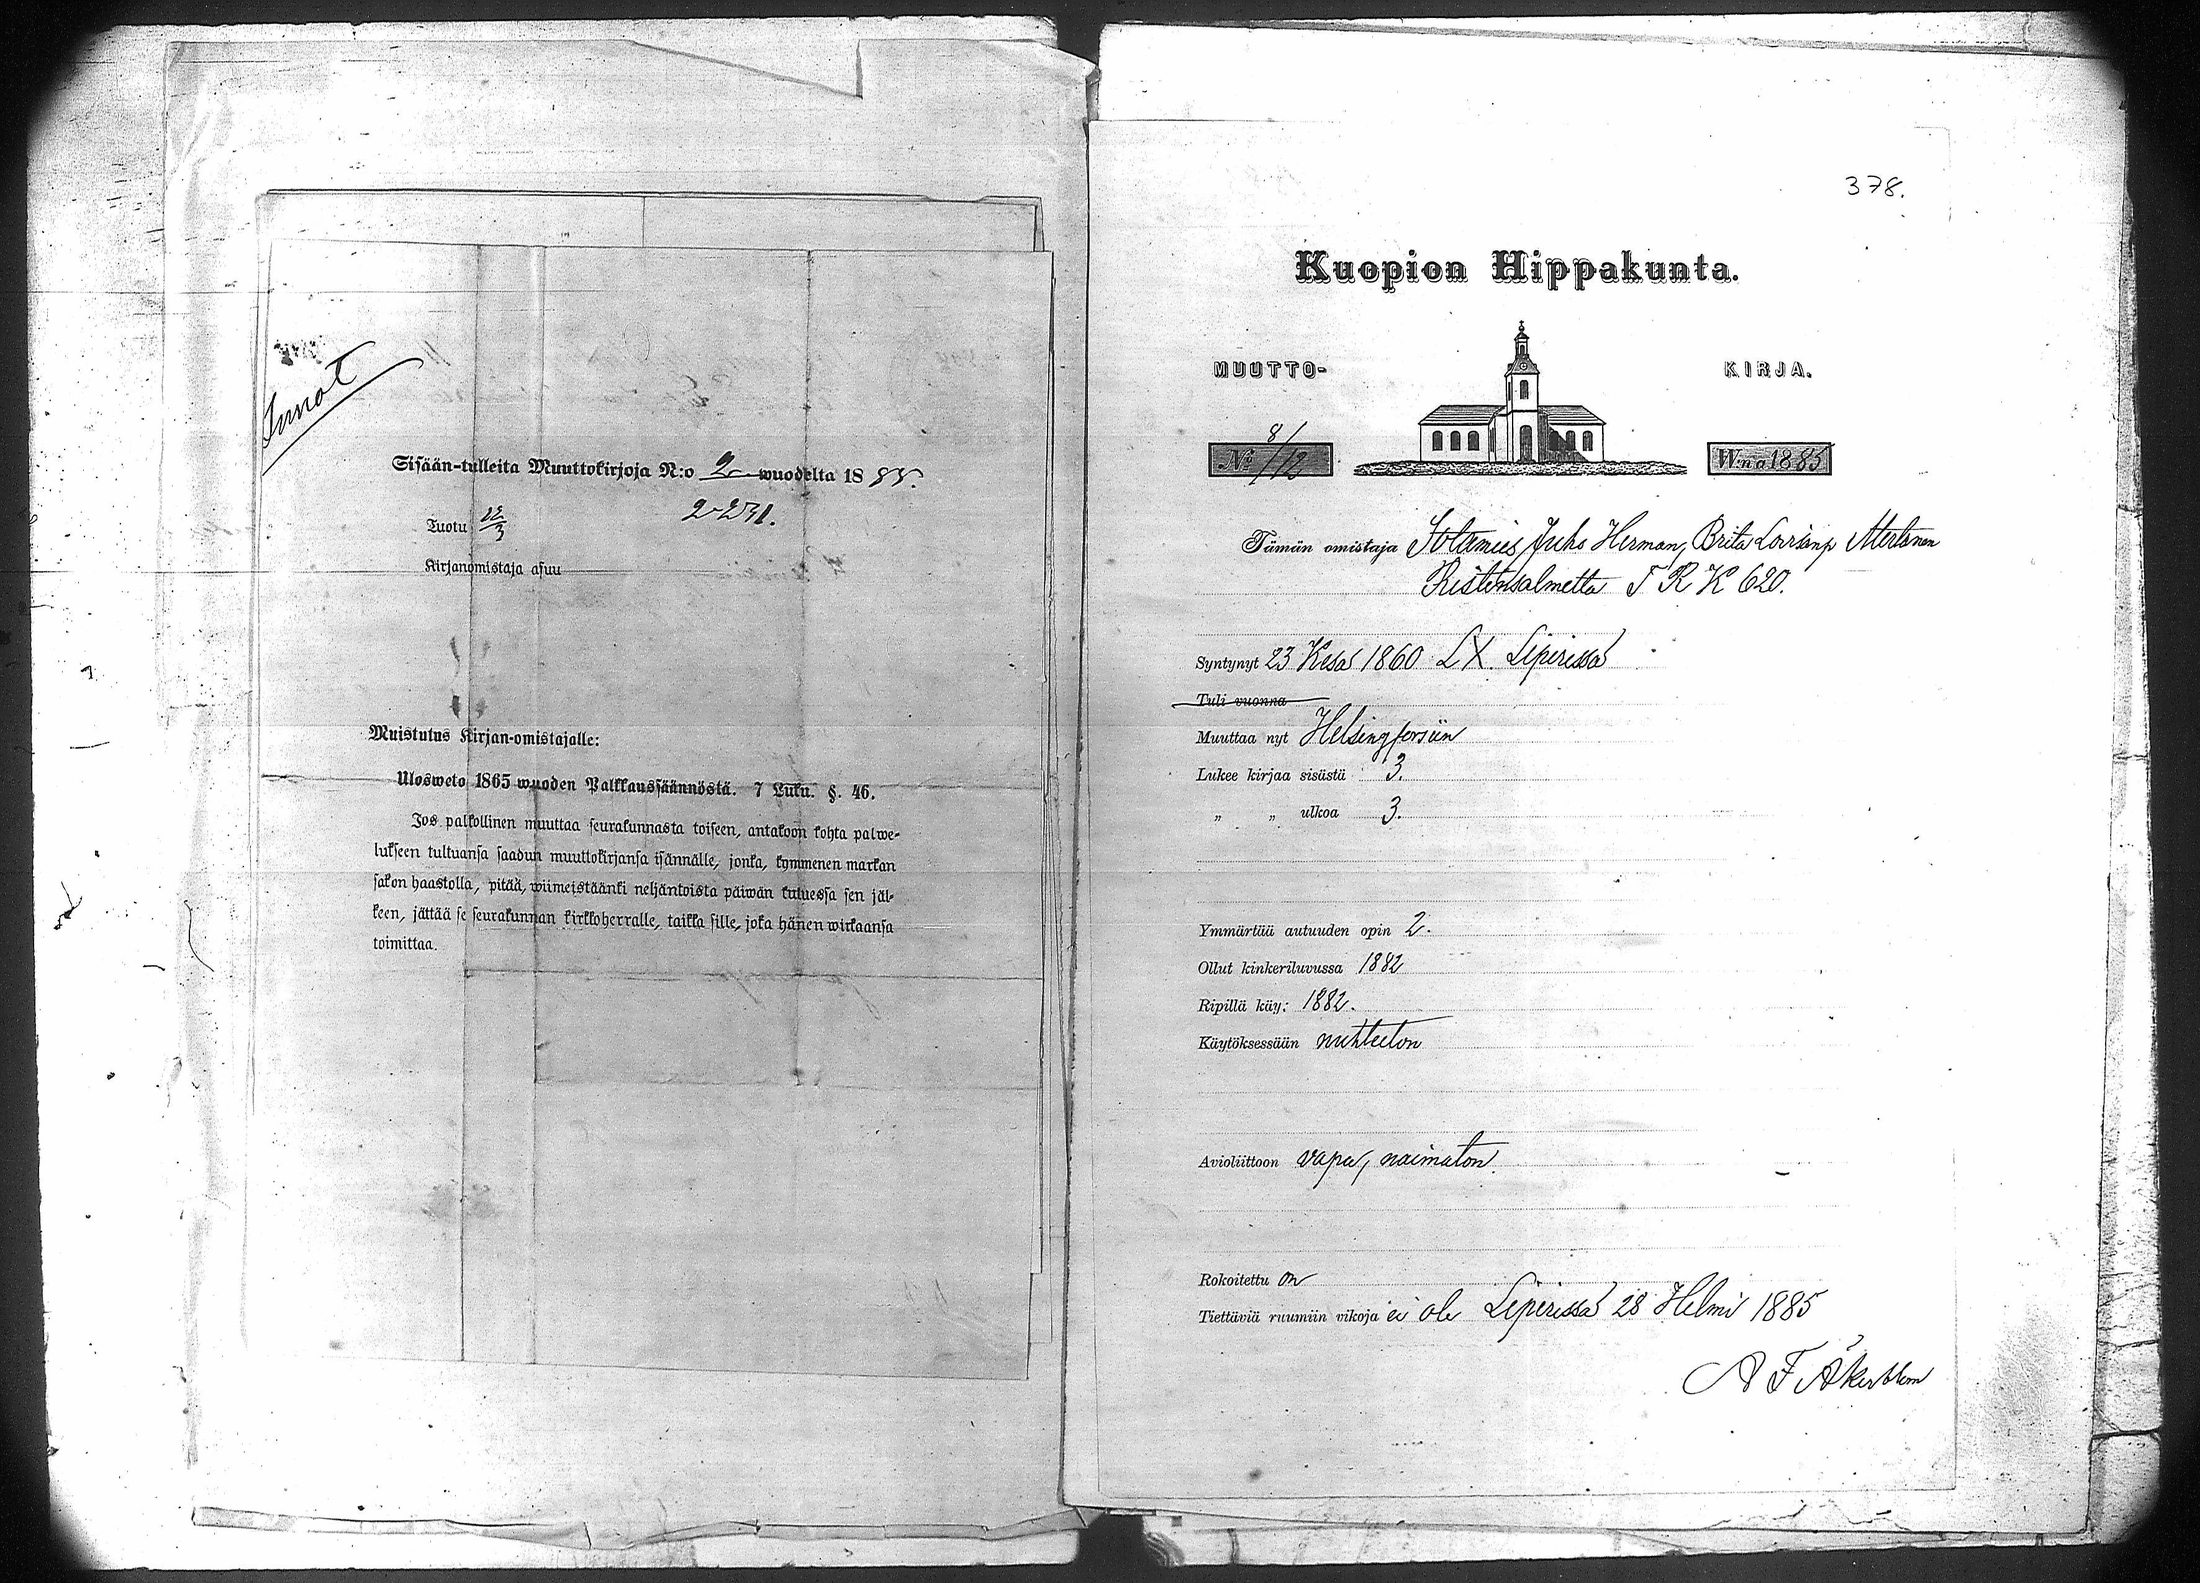 Sisään-tulleita Muuttokirjoja N:o 2 wuodelta 1885.
Tuotu 22/3
Kirjanomistaja asuu
Muistutus Kirjan-omistajalle:
Ulosweto 1865 wuoden Palkkaussäännöstä. 7 Luku. §. 46.
Jos palkollinen muuttaa seurakunnasta toiseen, antakoon kohta palwe-
lukseen tultuansa saadun muuttokirjansa isännälle, jonka, kymmenen markan
sakon haastolla, pitää, wiimeistäänki neljäntoista päiwän kuluessa sen jäl-
keen, jättää se seurakunnan kirkkoherralle, taikka sille, joka hänen wirkaansa
toimittaa.
378.
Kuopion Hippakunta.
MUUTTO- KIRJA.
No 8/12 W:na 1885
Tämän omistaja Juho Herman, Brita Mertanen
Ristinsalmelta T R K 620.
Syntynyt 23 Kesä 1860 LX. Liperissä
Tuli vuonna
Muuttaa nyt Helsingforsiin
Lukee kirjaa sisästä 3.
" " ulkoa 3.
Ymmärtää autuuden opin 2.
Ollut kinkeriluvussa 1882
Ripillä käy: 1882.
Käytöksessään nuhteeton
Avioliittoon vapa, naimaton.
Rokoitettu on
Tiettäviä ruumiin vikoja ei ole Liperissä 28 Helmi 1885
A F Åkerblom